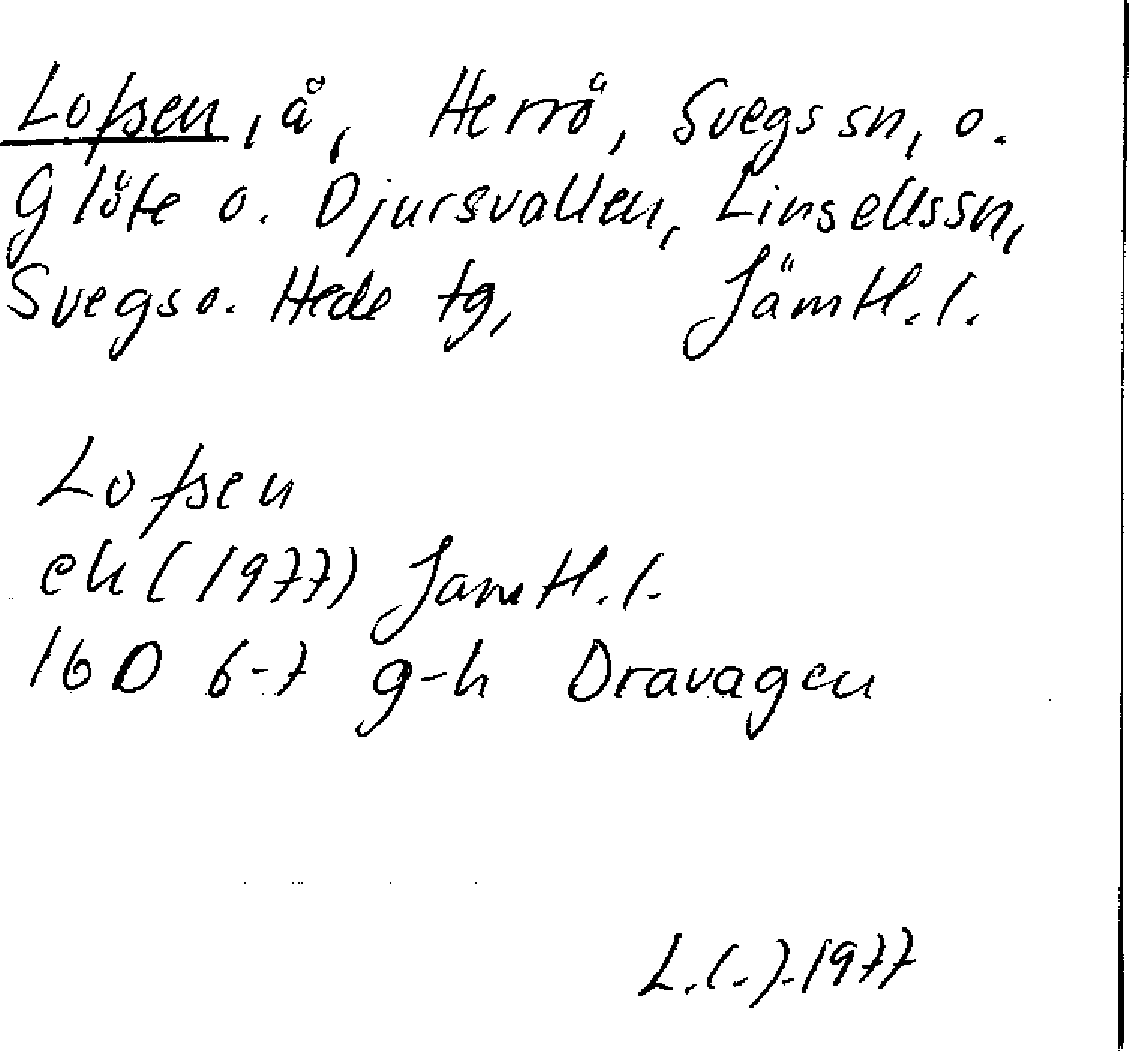 Lofsen, å, Herrö, Svegs sn, o.
Glöte o. Djursvallen, Linsells sn,
Svegs o. Hede tg, Jämtl. l.
Lofsen
ek (1977) Jämtl. l.
16D 6-7 g-h Dravagen
1977